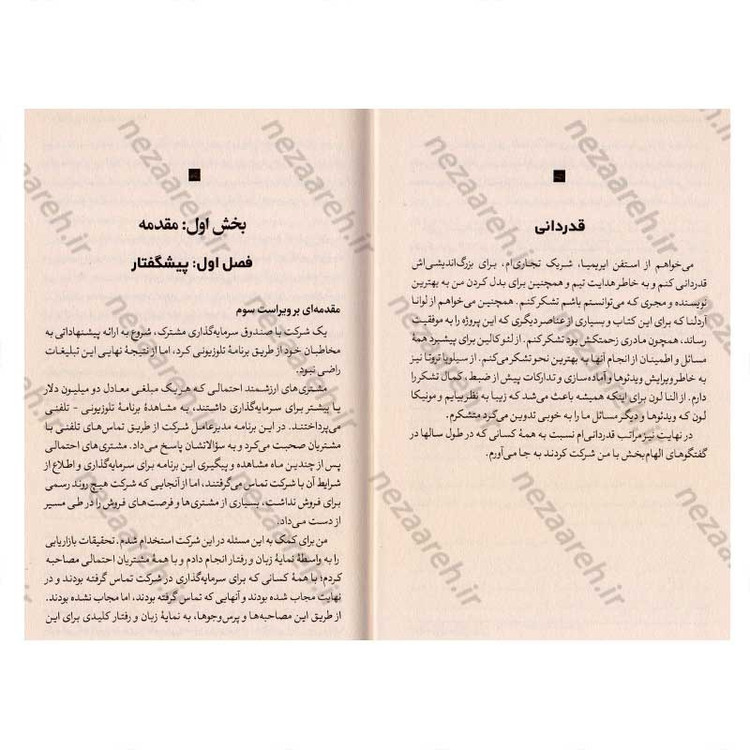 قدردانی
می‌خواهم از استفن ابریمیا، شریک تجاری‌ام، برای بزرگ‌اندیشی‌اش
قدردانی کنم و به خاطر هدایت تیم و همچنین برای بدل کردن من به بهترین
نویسنده و مجری که می‌توانستم باشم تشکر کنم. همچنین می‌خواهم از لوانا
آردلنا که برای این کتاب و بسیاری از عناصر دیگری که این پروژه را به موفقیت
رساند، همچون مادری زحمتکش بود تشکر کنم. از لئو کالین برای پیشبرد همهٔ
مسائل و اطمینان از انجام آنها به بهترین نحو تشکر می‌کنم. از سیلویا تروتا نیز
به خاطر ویرایش ویدئوها و آماده‌سازی و تدارکات پیش از ضبط، کمال تشکر را
دارم. از النا لون برای اینکه همیشه باعث می‌شد که زیبا به نظر بیایم و مونیکا
لون که ویدئوها و دیگر مسائل ما را به خوبی تدوین می‌کرد متشکرم.
در نهایت نیز مراتب قدردانی‌ام نسبت به همهٔ کسانی که در طول سالها در
گفتگوهای الهام‌بخش با من شرکت کردند به جا می‌آورم.
بخش اول: مقدمه
فصل اول: پیشگفتار
مقدمه‌ای بر ویراست سوم
یک شرکت با صندوق سرمایه‌گذاری مشترک، شروع به ارائه پیشنهاداتی به
مخاطبان خود از طریق برنامهٔ تلوزیونی کرد، اما از نتیجهٔ نهایی این تبلیغات
راضی نبود.
مشتری‌های ارزشمند احتمالی که هر یک مبلغی معادل دو میلیون دلار
یا بیشتر برای سرمایه‌گذاری داشتند، به مشاهدهٔ برنامهٔ تلوزیونی - تلفنی
می‌پرداختند. در این برنامه مدیرعامل شرکت از طریق تماس‌های تلفنی با
مشتریان صحبت می‌کرد و به سؤالاتشان پاسخ می‌داد. مشتری‌های احتمالی
پس از چندین ماه مشاهده و پیگیری این برنامه برای سرمایه‌گذاری و اطلاع از
شرایط آن با شرکت تماس می‌گرفتند، اما از آنجایی که شرکت هیچ روند رسمی
برای فروش نداشت، بسیاری از مشتری‌ها و فرصت‌های فروش را در طی مسیر
از دست می‌داد.
من برای کمک به این مسئله در این شرکت استخدام شدم. تحقیقات بازاریابی
را به واسطهٔ نمایهٔ زبان و رفتار انجام دادم و با همهٔ مشتریان احتمالی مصاحبه
کردم؛ با همهٔ کسانی که برای سرمایه‌گذاری در شرکت تماس گرفته بودند و در
نهایت مجاب شده بودند و آنهایی که تماس گرفته بودند، اما مجاب نشده بودند.
از طریق این مصاحبه‌ها و پرس‌وجوها، به نمایهٔ زبان و رفتار کلیدی برای این
nezaareh.ir
nezaareh.ir
nezaareh.ir
nezaareh.ir
nezaareh.ir
nezaareh.ir
nezaareh.ir
nezaareh.ir
nezaareh.ir